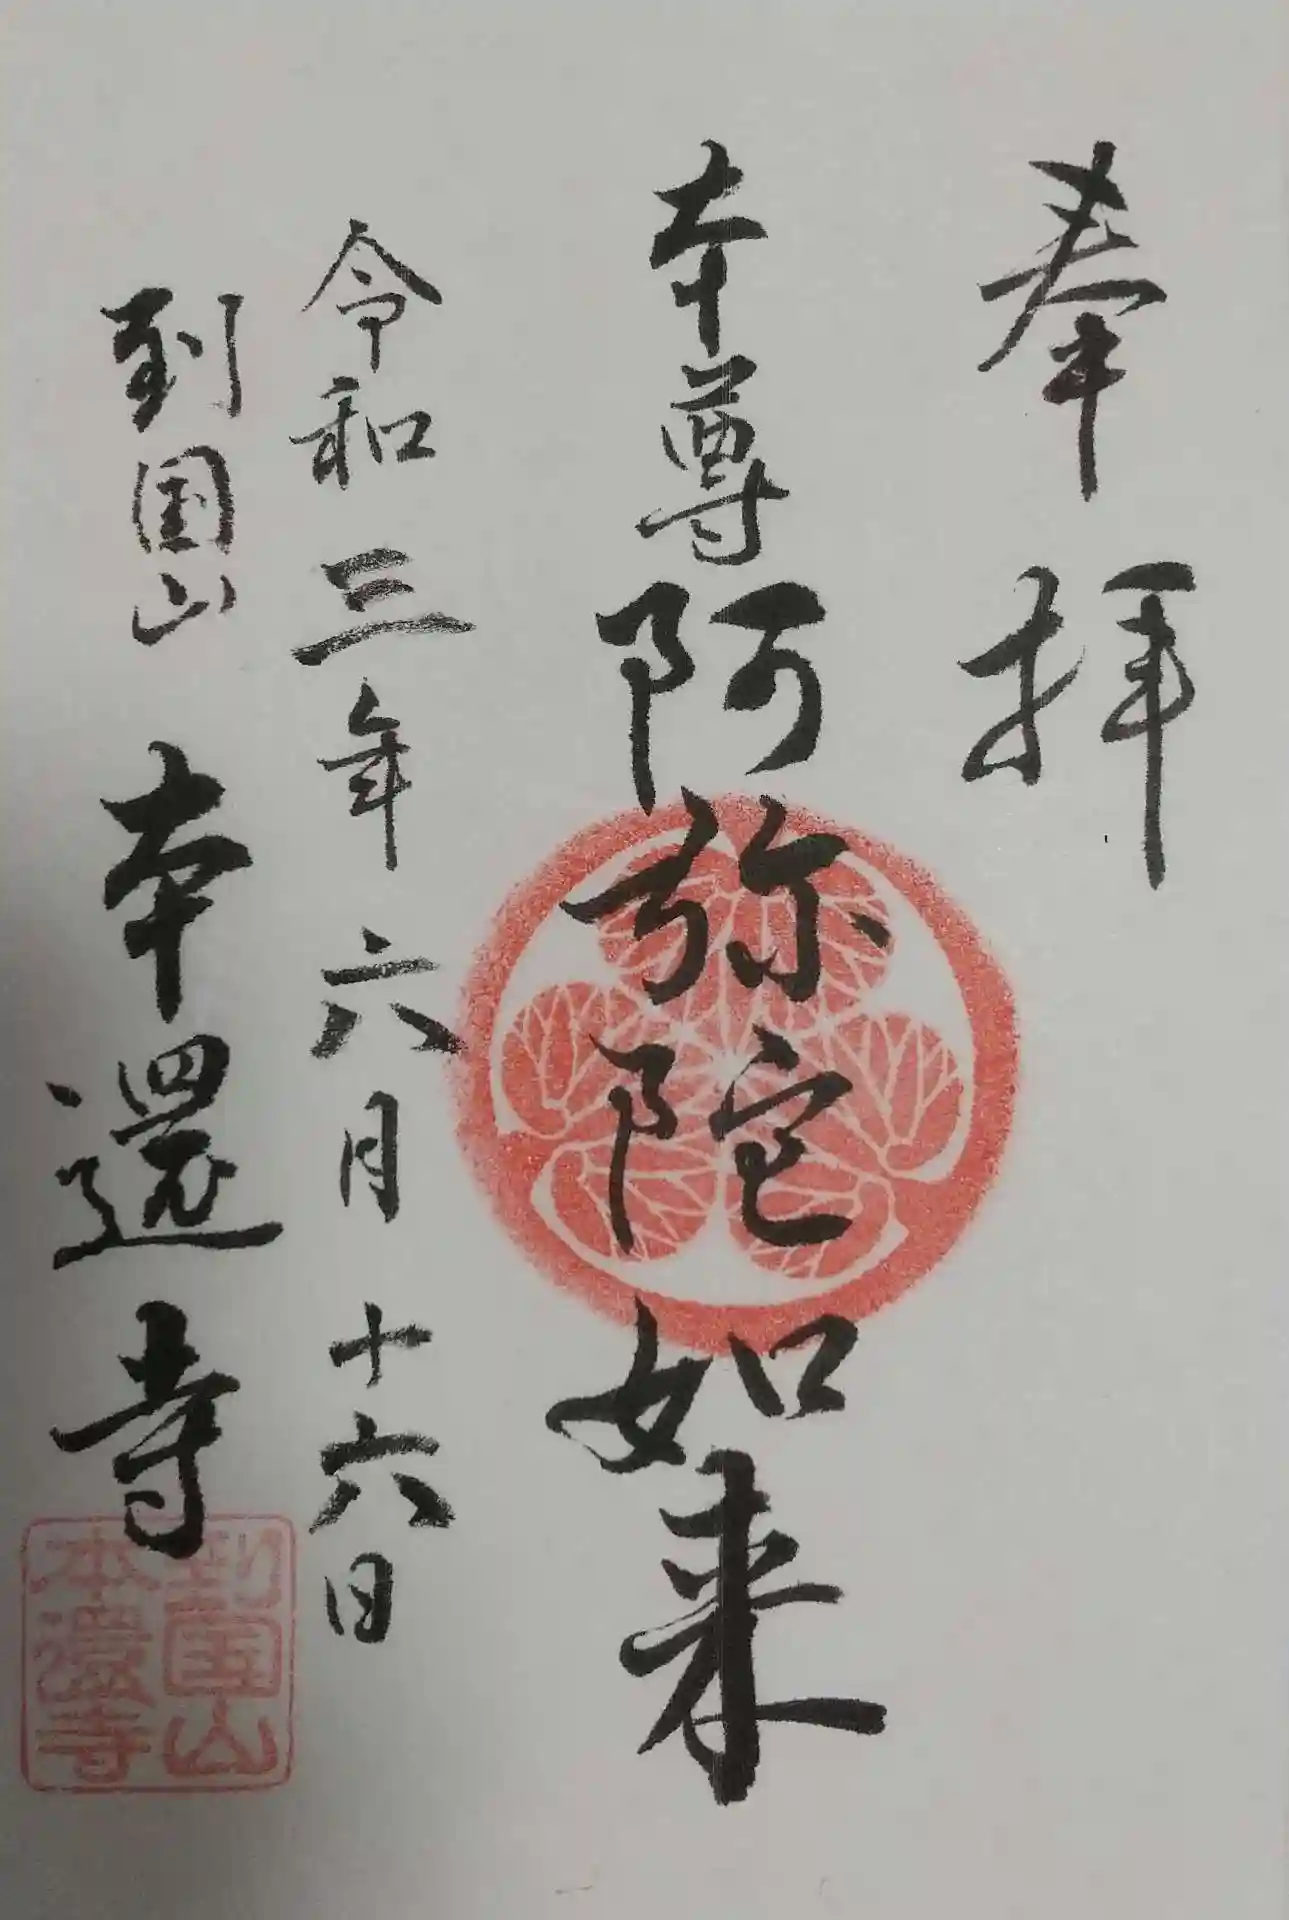 奉拝
本尊阿弥陀如来
令和三年六月十六日
到国山 本還寺
到国山
本還寺